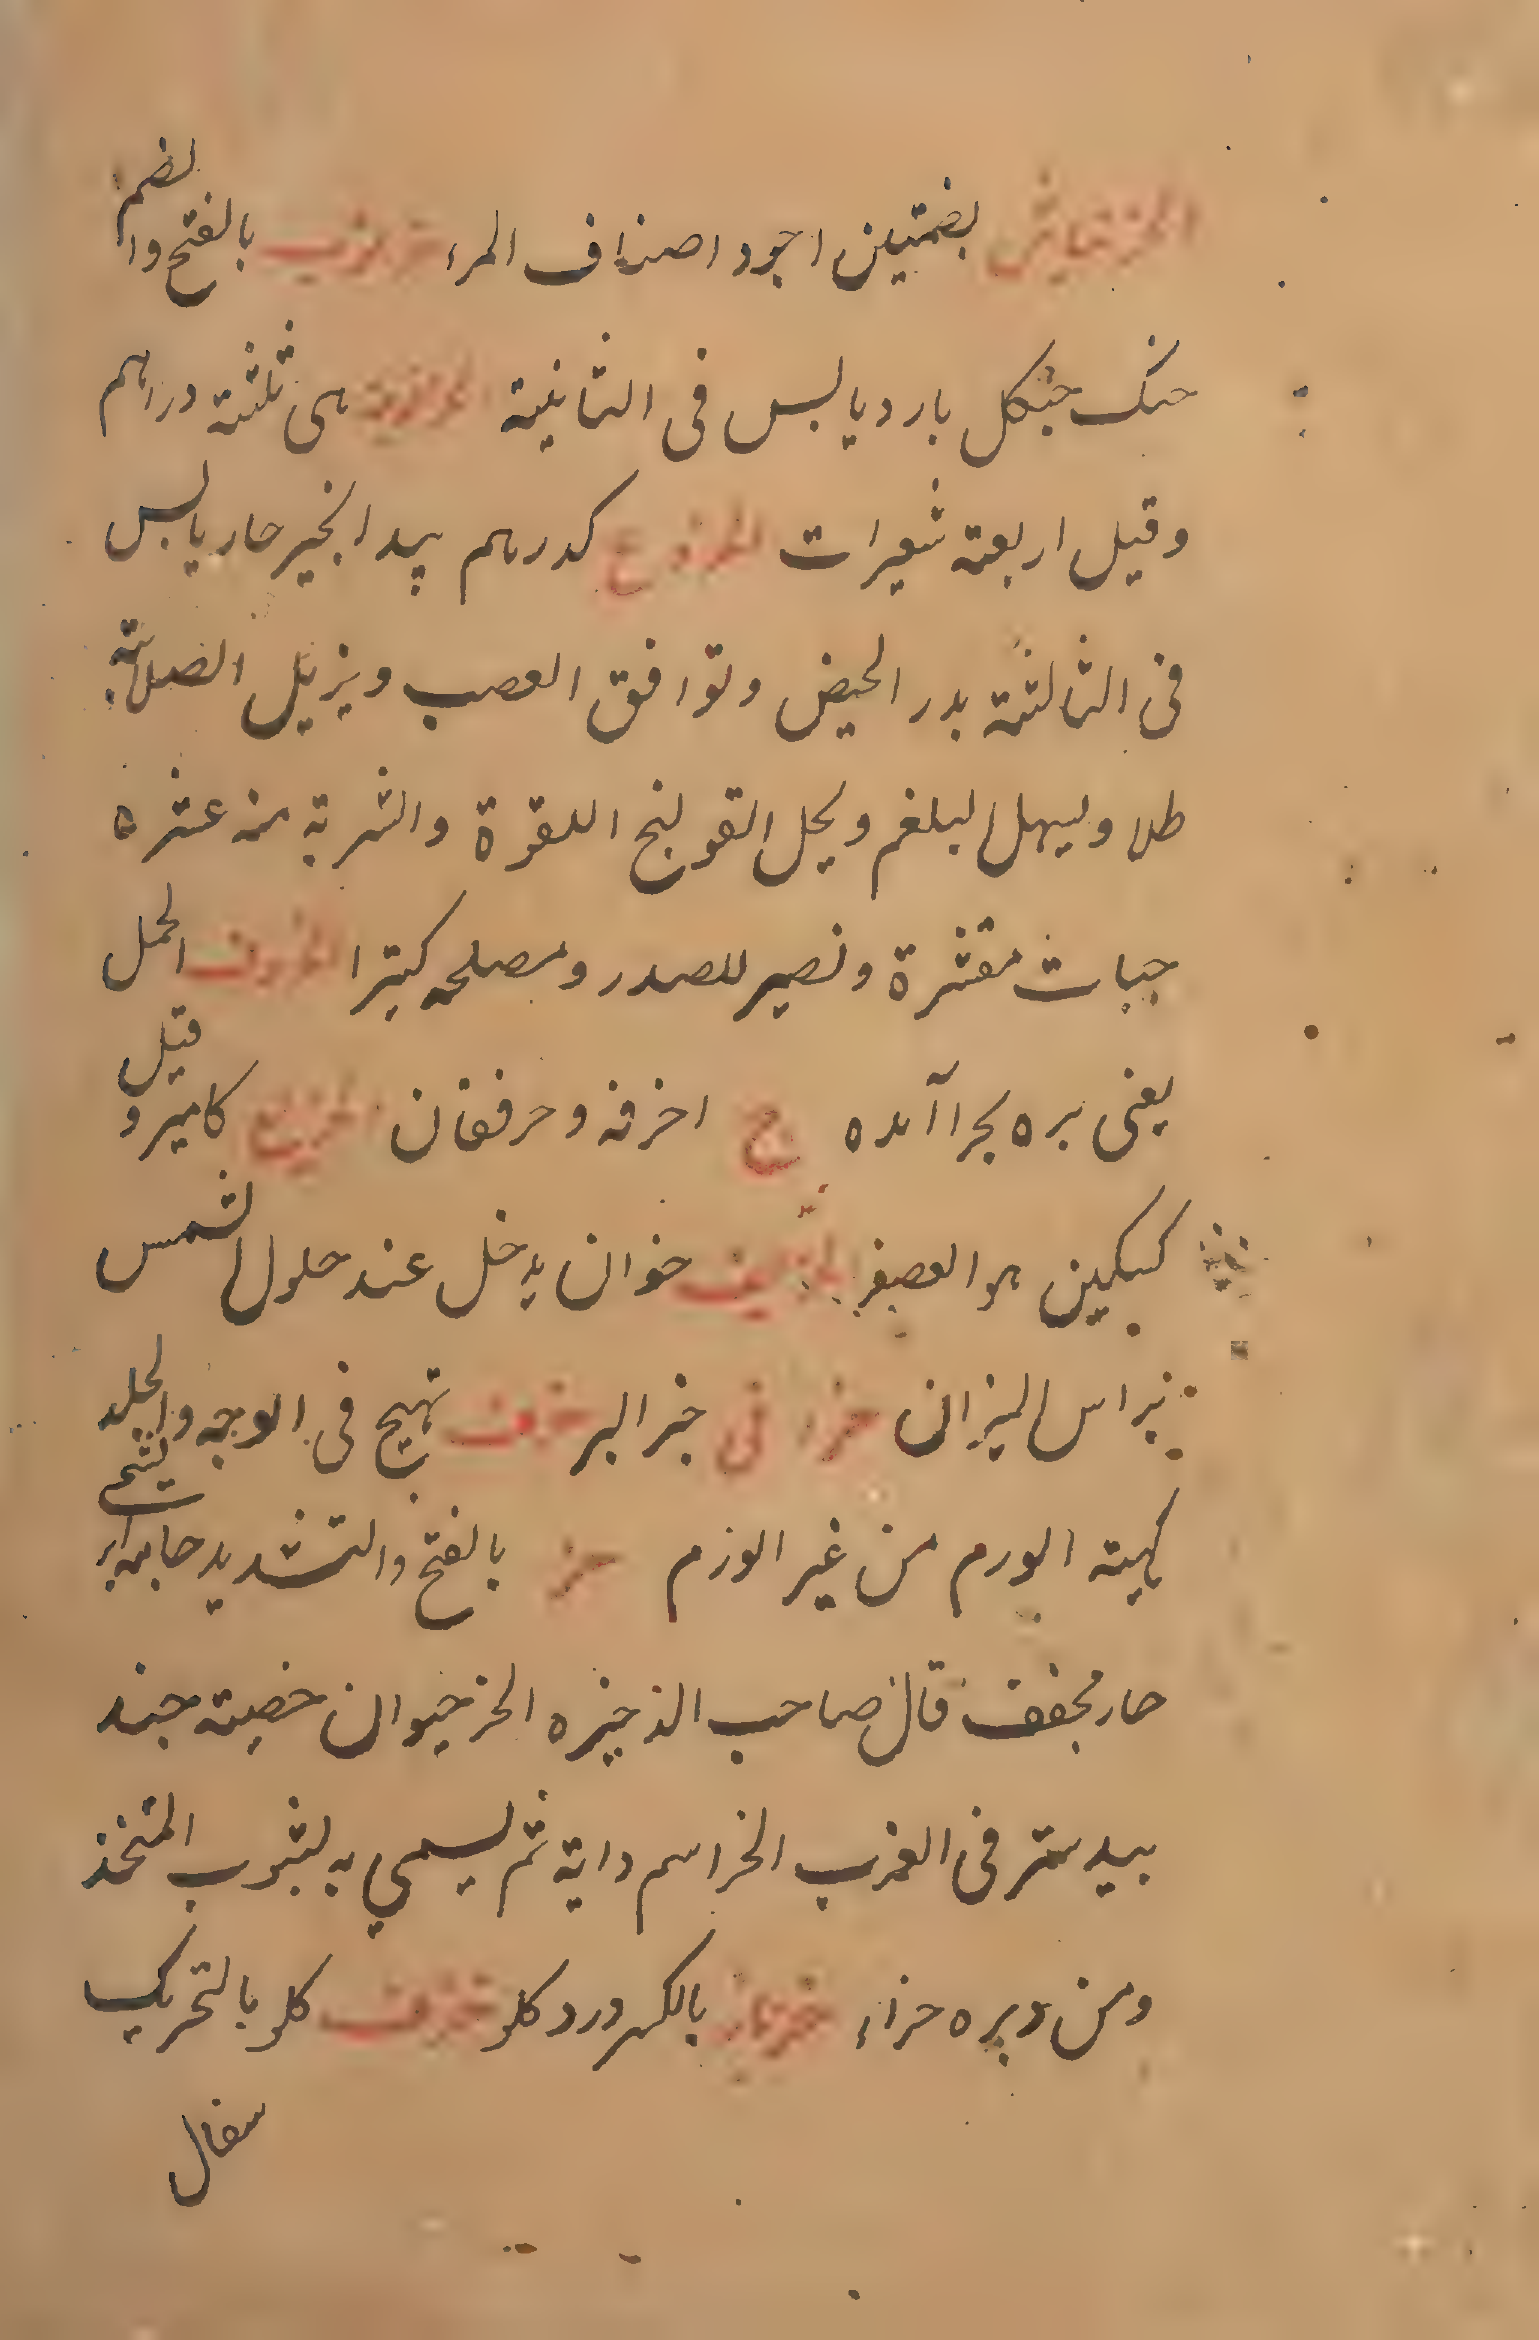 بضمتین اجود اصناف المر، خرنوب بالفتح والضم
جنک جنکل بارد یابس فی الثانیة هی ثلثة دراهم
وقیل اربعة شعیرات الخروع کدرهم بید انجیر حار یابس
فی الثالثة یدر الحیض وتوافق العصب ویزیل الصلابة
طلا ویسهل البلغم ویحل القولنج اللقوة والشربة منه عشره
حبات مقشرة ونصیر للصدر ومصلحه کتیرا الخروف الحمل
یعنی بره بچرا آمده ج اخرفه وخرفان الخریع کامیر وقیل
کسکین هو العصفر الخریف خوان یدخل عند حلول الشمس
براس المیزان خبز البر خزف تهیج فی الوجه والجلد
کهیئة الورم من غیر الورم خز بالفتح والتشدید جامه ابریشم
حار مجفف قال صاحب الذخیره الخز حیوان خصیته جند
بیدستر فی المغرب الخز اسم دابة ثم یسمی به الثوب المتخذ
ومن وبره خزا، خزباز بالکسر ورد کلو خزف کلو بالتحریک
سفال